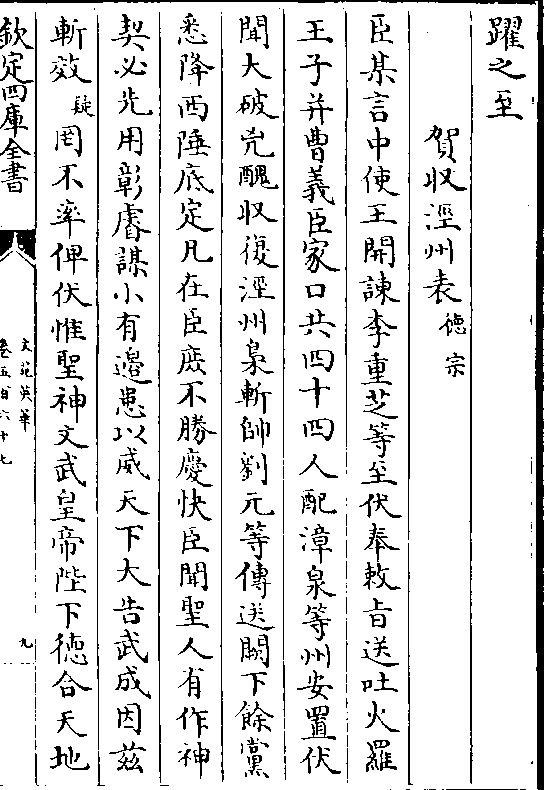 躍之至
賀收涇州表德宗
臣某言中使王開諫李重芝等至伏奉敕㫖送吐火羅
王子并曹義臣家口共四十四人配漳泉等州安置伏
聞大破兇醜收復涇州梟斬帥劉元等傳送闕下餘黨
悉降西陲底定凡在臣庶不勝慶快臣聞聖人有作神
契必先用彰睿謀小有邊患以威天下大告武成因茲
斬效疑罔不率俾伏惟聖神文武皇帝陛下德合天地
欽定四庫全書
文苑英華
卷五百六十七
九